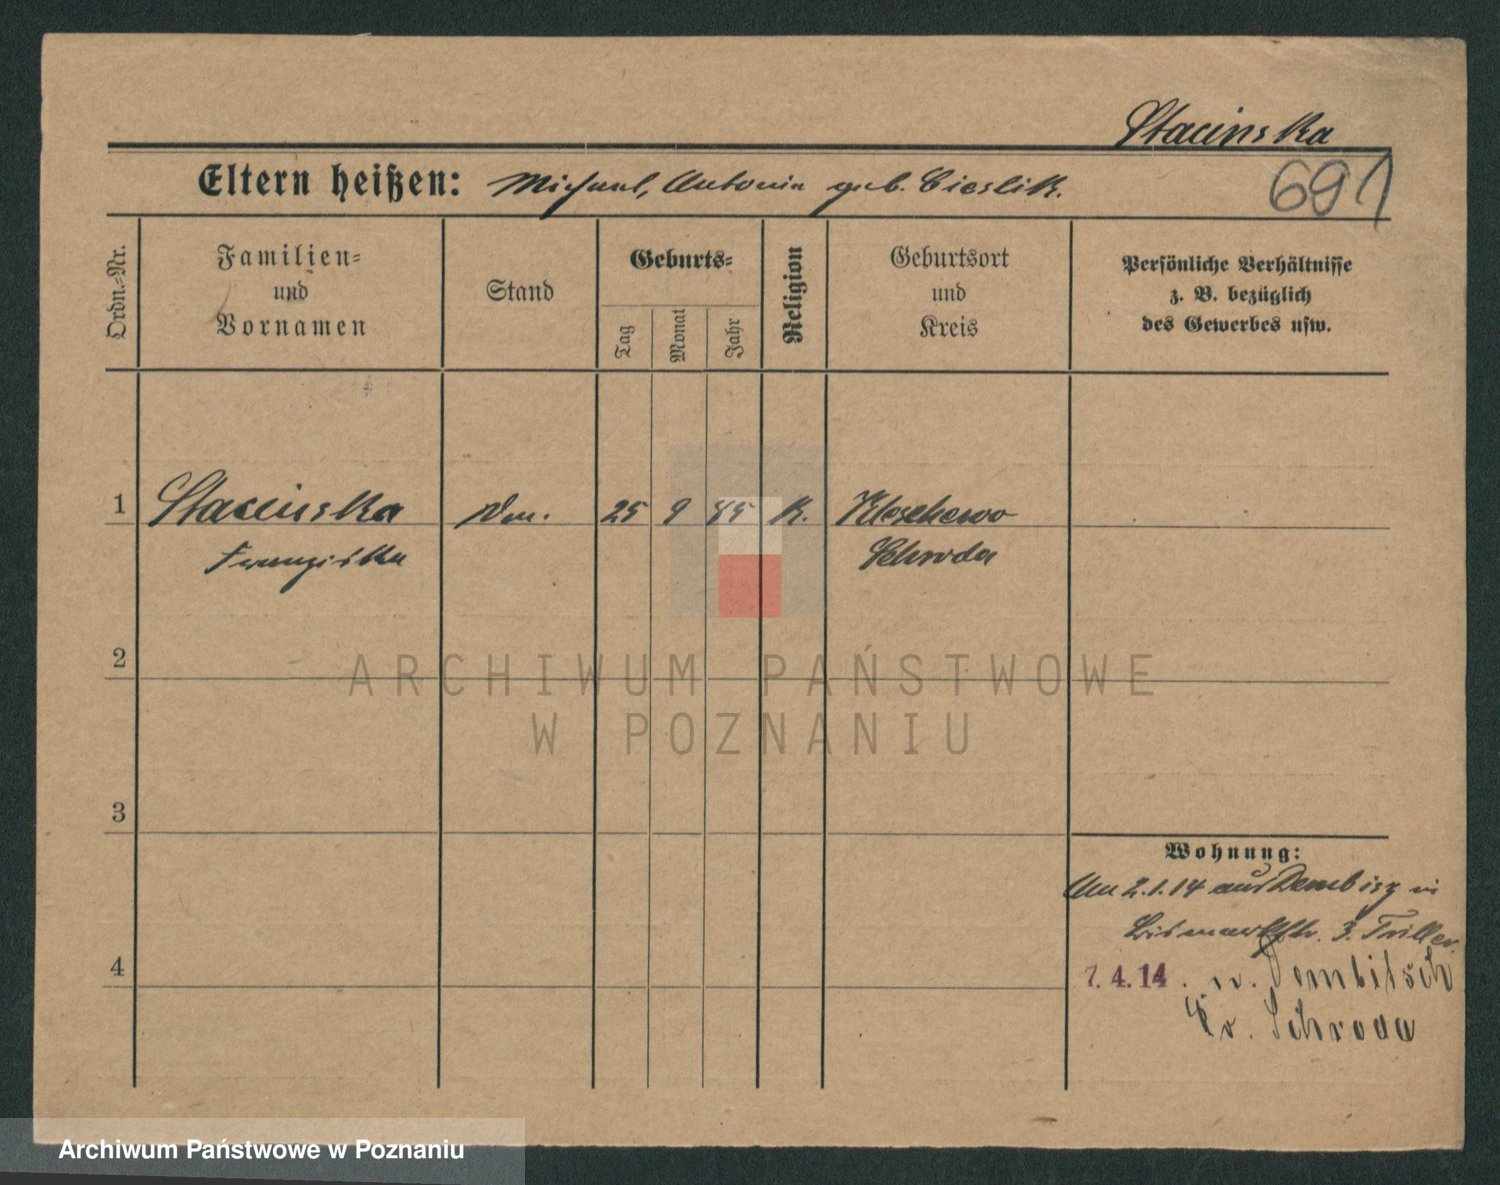 Stacinska
Eltern heißen: Michael, Antonia geb. Cieslik.
691
Ordn.-Nr.
Familien-
und
Vornamen
Stand
Geburts-
Tag
Monat
Jahr
Religion
Geburtsort
und
Kreis
Persönliche Verhältnisse
z. B. bezüglich
des Gewerbes usw.
1 Stacinska 25 9 K.
Franziska Schroda
2
ARCHIWUM PAŃSTWOWE
W POZNANIU
3
Wohnung:
Am 2.1.14 aus in
Bismarckstr. 3. Triller.
4
7.4.14. n. Dembitsch
Kr. Schroda
Archiwum Państwowe w Poznaniu